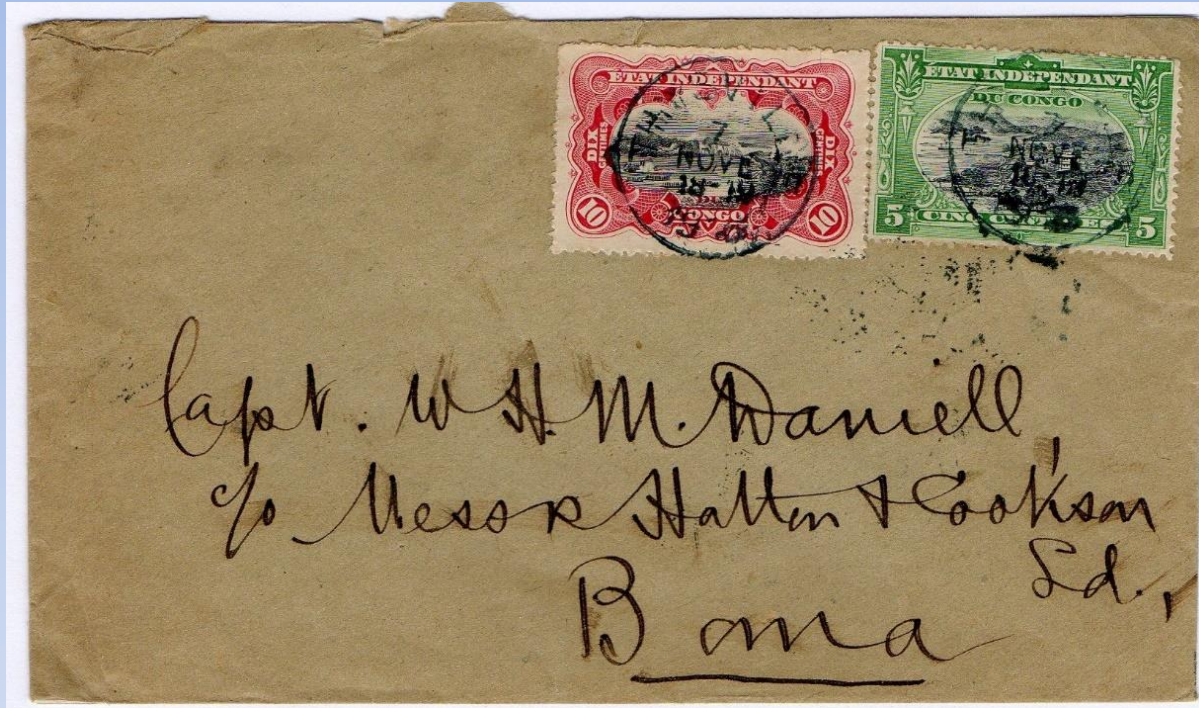 ETAT INDEPENDANT
DIX CENTIMES
DIX CENTIMES
CONGO
10
10
ETAT INDEPENDANT
DU CONGO
5
CINQ CENTIMES
5
7
NOVE
7
NOVE
Capt. W H. M. Daniell,
c/o Messrs Hatton & Cookson
Ld.,
Boma